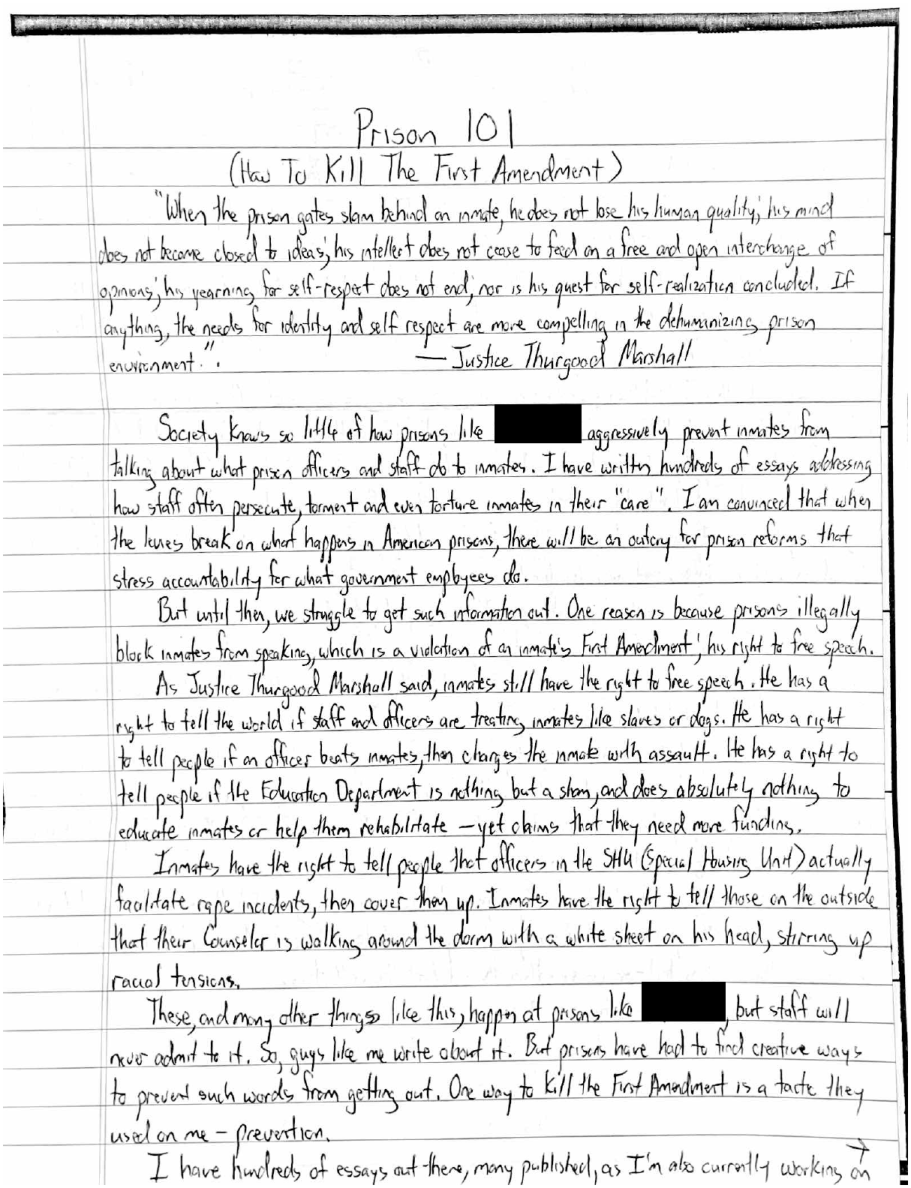 Prison 101
(How To Kill The First Amendment)
"When the prison gates slam behind an inmate, he does not lose his human quality; his mind
does not become closed to ideas; his intellect does not cease to feed on a free and open interchange of
opinions; his yearning for self-respect does not end; nor is his quest for self-realization concluded. If
anything, the needs for identity and self respect are more compelling in the dehumanizing prison
environment.".
— Justice Thurgood Marshall
Society knows so little of how prisons like aggressively prevent inmates from
talking about what prison officers and staff do to inmates. I have written hundreds of essays addressing
how staff often persecute, torment and even torture inmates in their "care". I am convinced that when
the levies break on what happens in American prisons, there will be an outcry for prison reforms that
stress accountability for what government employees do.
But until then, we struggle to get such information out. One reason is because prisons illegally
block inmates from speaking, which is a violation of an inmate's First Amendment; his right to free speech.
As Justice Thurgood Marshall said, inmates still have the right to free speech. He has a
right to tell the world if staff and officers are treating inmates like slaves or dogs. He has a right
to tell people if an officer beats inmates, then charges the inmate with assault. He has a right to
tell people if the Education Department is nothing but a sham, and does absolutely nothing to
educate inmates or help them rehabilitate — yet claims that they need more funding.
Inmates have the right to tell people that officers in the SHU (Special Housing Unit) actually
facilitate rape incidents, then cover them up. Inmates have the right to tell those on the outside
that their Counselor is walking around the dorm with a white sheet on his head, stirring up
racial tensions.
These, and many other things like this, happen at prisons like , but staff will
never admit to it. So, guys like me write about it. But prisons have had to find creative ways
to prevent such words from getting out. One way to kill the First Amendment is a tacte they
used on me – prevention.
I have hundreds of essays out there, many published, as I'm also currently working on →